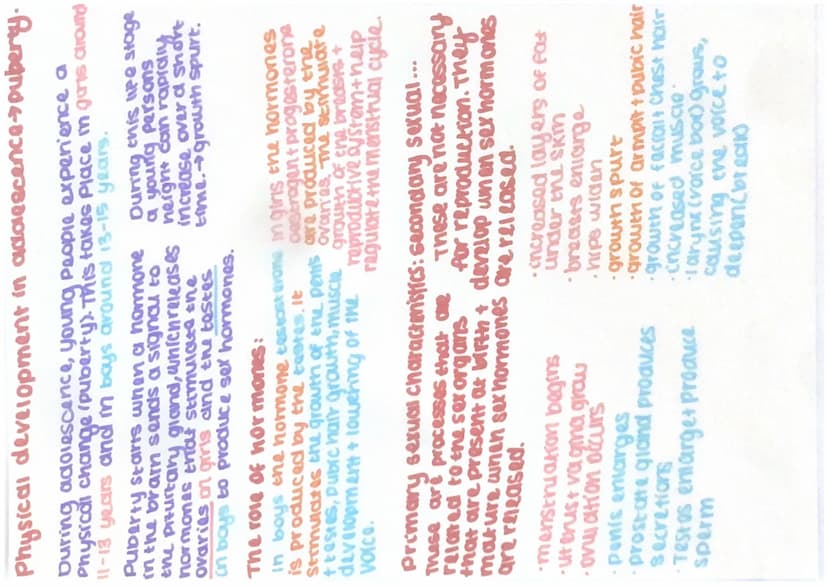 Physical development in adolescence→puberty.
During adolescence, young people experience a
Physical change (puberty). This takes place in girls around
11-13 years and in boys around 13-15 years.
Puberty starts when a hormone
in the brain sends a signal to
the pituitary gland, which releases
hormones that stimulate the
ovaries in girls and the testes
in boys to produce sex hormones.
During this life stage
a young persons
height can rapidly
increase over a short
time.→growth spurt.
The role of hormones:
in boys the hormone testosterone
is produced by the testes. It
stimulates the growth of the penis
+ testes, pubic hair growth, muscle
development + lowering of the
voice.
in girls the hormones
oestrogen + progesterone
are produced by the
ovaries. The stimulate
growth of the breasts +
reproductive system + help
regulate the menstrual cycle.
Primary sexual characteristics: secondary sexual...
These are processes that are
related to the sex organs
that are present at birth +
mature when sex hormones
are released.
These are not necessary
for reproduction. They
develop when sex hormones
are released.
· menstruation begins
· uterus + vagina grow
· ovulation occurs
· Penis enlarges
· prostate gland produces
secretions
· Testes enlarge + produce
sperm
· increased layers of fat
under the skin
· breasts enlarge
· hips widen
· growth spurt
· growth of armpit + pubic hair
· growth of facial + chest hair
· increased muscle.
· larynx (voice box) grows,
causing the voice to
deepen (break)